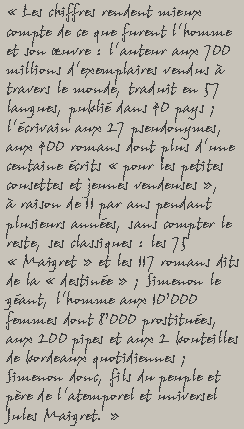 « Les chiffres rendent mieux
compte de ce que furent l'homme
et son œuvre : l'auteur aux 700
millions d'exemplaires vendus à
travers le monde, traduit en 57
langues, publié dans 40 pays ;
l'écrivain aux 27 pseudonymes,
aux 400 romans dont plus d'une
centaine écrits « pour les petites
cousettes et jeunes vendeuses »,
à raison de 11 par ans pendant
plusieurs années, sans compter le
reste, ses classiques : les 75
« Maigret » et les 117 romans dits
de la « destinée » ; Simenon le
géant, l'homme aux 10'000
femmes dont 8'000 prostituées,
aux 200 pipes et aux 2 bouteilles
de bordeaux quotidiennes ;
Simenon donc, fils du peuple et
père de l'atemporel et universel
Jules Maigret. »